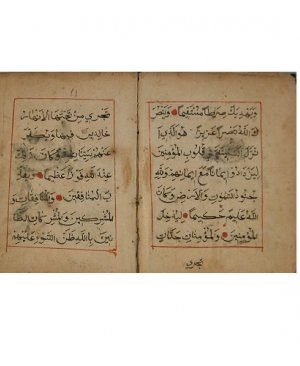 ويهديك صراطا مستقيما وينصر
ك الله نصرا عزيزا هو الذي ا
نزل السكينة في قلوب المؤمنين
ليزدادوا ايمانا مع ايمانهم ولله
جنود السموات والارض وكان
الله عليما حكيما ليدخل
المؤمنين والمؤمنات جنات
تجري
تجري من تحتها الانهار
خالدين فيها ويكفر
عنهم سيئاتهم وكان ذلك
عند الله فوزا عظيما ويعذ
ب المنافقين والمنافقات و
المشركين والمشركات الظا
نين بالله ظن السوء عليهم